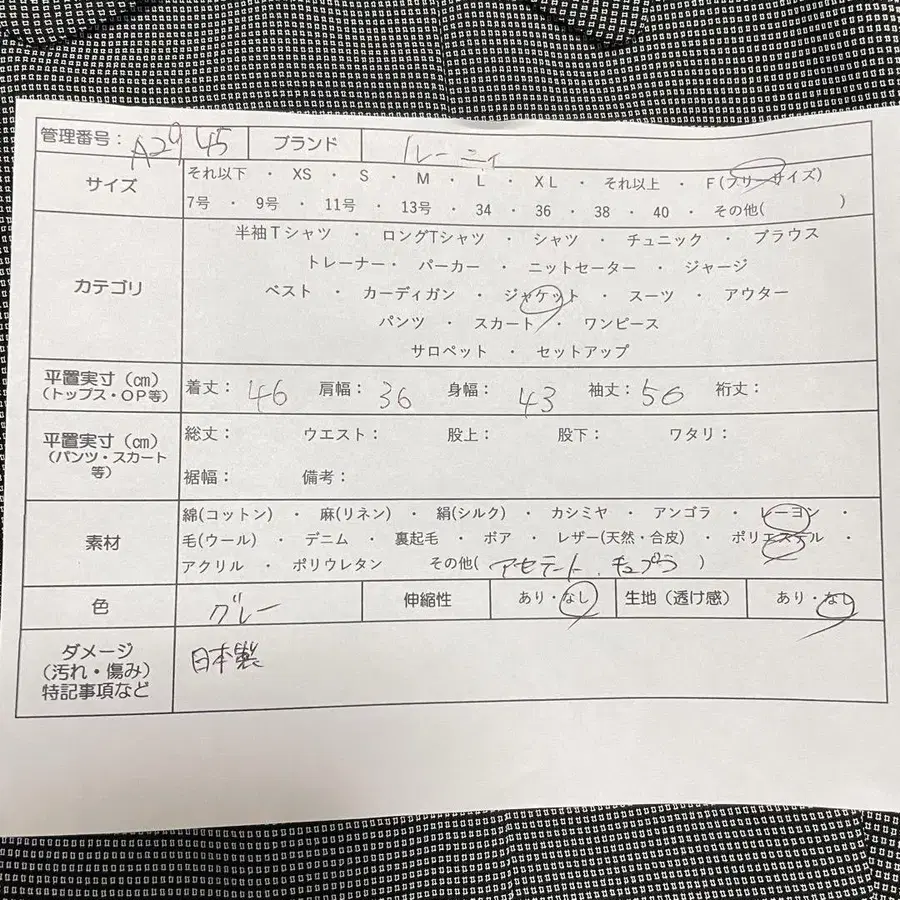 管理番号: A2945 ブランド ルーニィ
サイズ それ以下 ・ XS ・ S ・ M ・ L ・ XL ・ それ以上 ・ F(フリーサイズ)
7号 ・ 9号 ・ 11号 ・ 13号 ・ 34 ・ 36 ・ 38 ・ 40 ・ その他( )
カテゴリ 半袖Tシャツ ・ ロングTシャツ ・ シャツ ・ チュニック ・ ブラウス
トレーナー・ パーカー ・ ニットセーター ・ ジャージ
ベスト ・ カーディガン ・ ジャケット ・ スーツ ・ アウター
パンツ ・ スカート ・ ワンピース
サロペット ・ セットアップ
平置実寸(cm)
(トップス・OP等)
着丈: 46 肩幅: 36 身幅: 43 袖丈: 56 裄丈:
平置実寸(cm)
(パンツ・スカート
等)
総丈: ウエスト: 股上: 股下: ワタリ:
裾幅: 備考:
素材 綿(コットン) ・ 麻(リネン) ・ 絹(シルク) ・ カシミヤ ・ アンゴラ ・ レーヨン ・
毛(ウール) ・ デニム ・ 裏起毛 ・ ボア ・ レザー(天然・合皮) ・ ポリエステル ・
アクリル ・ ポリウレタン その他( アセテート、キュプラ )
色 グレー 伸縮性 あり・なし 生地(透け感) あり・なし
ダメージ
(汚れ・傷み)
特記事項など
日本製